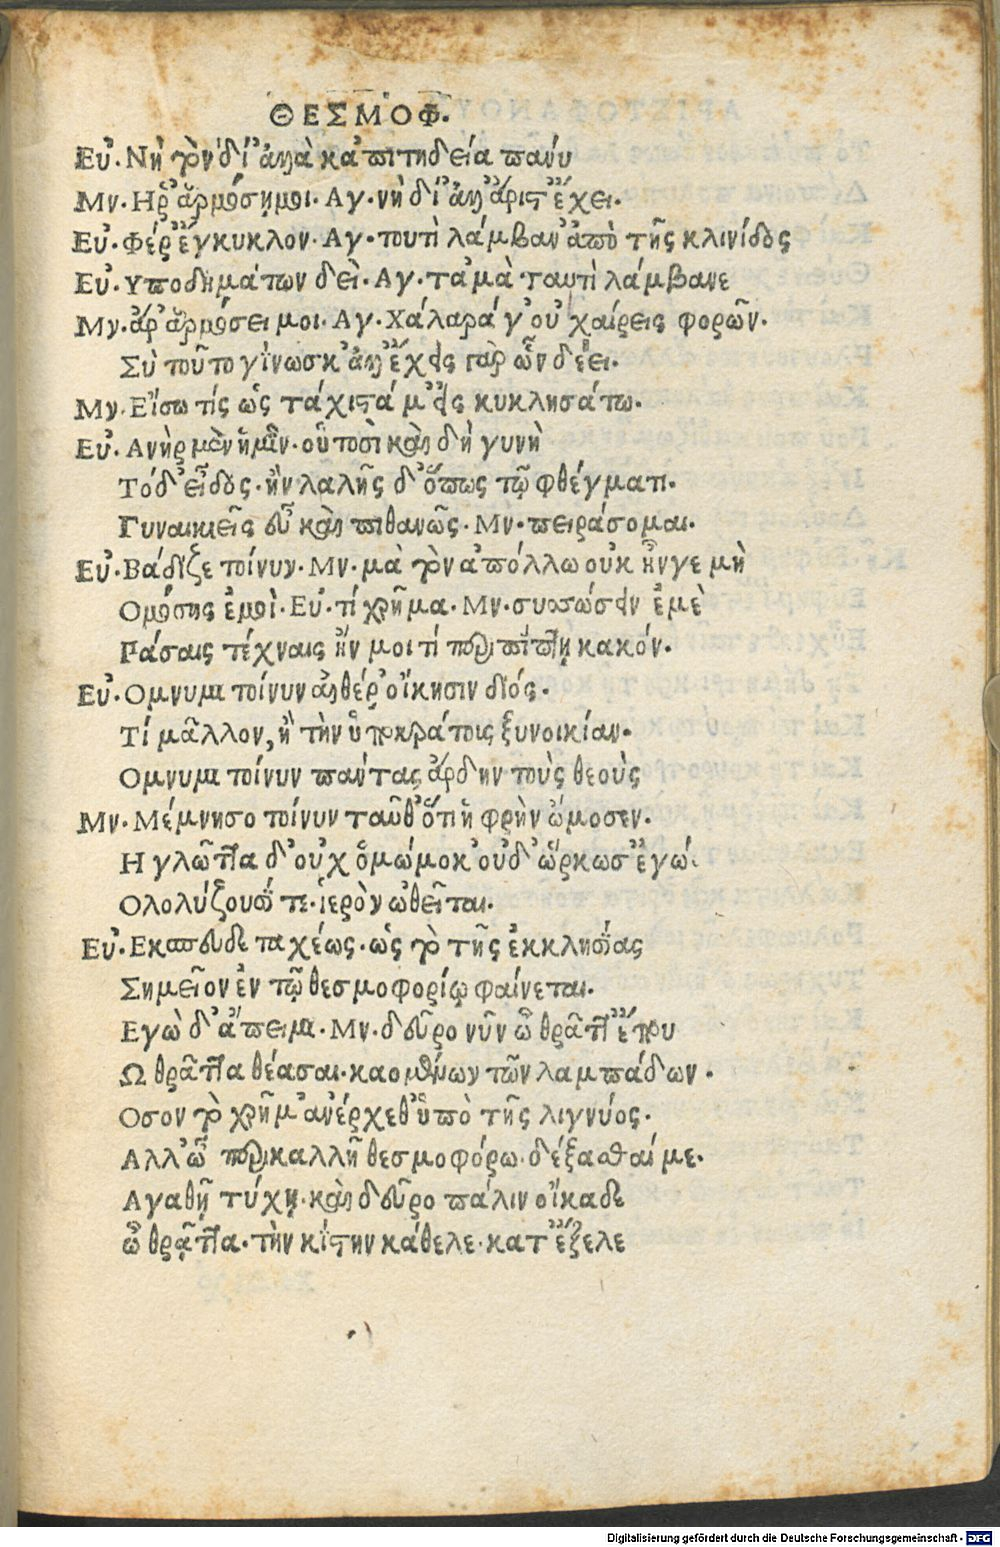 ΘΕΣΜΟΦ.
Ευ᾽. Νὴ τὸν δί᾽ ἀλλὰ κἀπιτηδεία πανύ
Μν. Ηρ᾽ ἁρμόσῃ μοι. Αγ. νὴ δί᾽ ἀλλ᾽ ἄριστ᾽ ἔχει.
Ευ᾽. Φέρ᾽ ἔγκυκλον. Αγ. τουτὶ λάμβαν᾽ ἀπὸ τῆς κλινίδος
Ευ᾽. Υποδημάτων δεῖ. Αγ. τἀμὰ ταυτὶ λάμβανε
Μν. ἆρ᾽ ἁρμόσει μοι. Αγ. Χάλαρά γ᾽ οὐ χαίρεις φορῶν.
Σὺ τοῦτο γίνωσκ᾽ ἀλλ᾽ ἔχεις γὰρ ὧν δέει.
Μν. Εἴσω τίς ὡς τάχιστά μ᾽ εἰς κυκλησάτω.
Ευ᾽. Ανὴρ μὲν ἡμῖν. οὑτοσὶ καὶ δὴ γυνὴ
Τό δ᾽ εἶδος. ἢν λαλῇς δ᾽ ὅπως τῷ φθέγματι.
Γυναικιεῖς εὖ καὶ πιθανῶς. Μν. πειράσομαι.
Ευ᾽. Βάδιζε τοίνυν. Μν. μὰ τὸν ἀπόλλω οὐκ ἤνγε μὴ
Ομόσῃς ἐμοὶ. Ευ᾽. τί χρῆμα. Μν. συσσώσειν ἐμὲ
Πάσαις τέχναις ἤν μοι τί περιπίπτῃ κακόν.
Ευ᾽. Ομνυμι τοίνυν αἰθέρ᾽ οἴκησιν διός.
Τί μᾶλλον, ἢ τὴν ἱπποκράτοις ξυνοικίαν.
Ομνυμι τοίνυν πάντας ἄρδην τοὺς θεοὺς
Μν. Μέμνησο τοίνυν ταῦθ᾽ ὅτι ἡ φρὴν ὤμοσεν.
Η γλῶττα δ᾽ οὐχ ὁμώμοκ᾽ οὐδ᾽ ὥρκωσ᾽ ἐγώ.
Ολολύζουσί τε. ἱερὸν ὠθεῖται.
Ευ᾽. Εκσπευδε ταχέως. ὡς τὸ τῆς ἐκκλησίας
Σημεῖον ἐν τῷ θεσμοφορίῳ φαίνεται.
Εγὼ δ᾽ ἄπειμι. Μν. δεῦρο νῦν ὦ θρᾷτθ᾽ ἕπου
Ω θρᾷττα θέασαι. καομένων τῶν λαμπάδων.
Οσον τὸ χρῆμ᾽ ἀνέρχεθ᾽ ὑπὸ τῆς λιγνύος.
Αλλ᾽ ὦ περικαλλῆ θεσμοφόρω. δέξασθαί με.
Αγαθῇ τύχῃ. καὶ δεῦρο πάλιν οἴκαδε
ὦ θρᾷττα. τὴν κίστην κάθελε. κατ᾽ ἔξελε
Digitalisierung gefördert durch die Deutsche Forschungsgemeinschaft - DFG